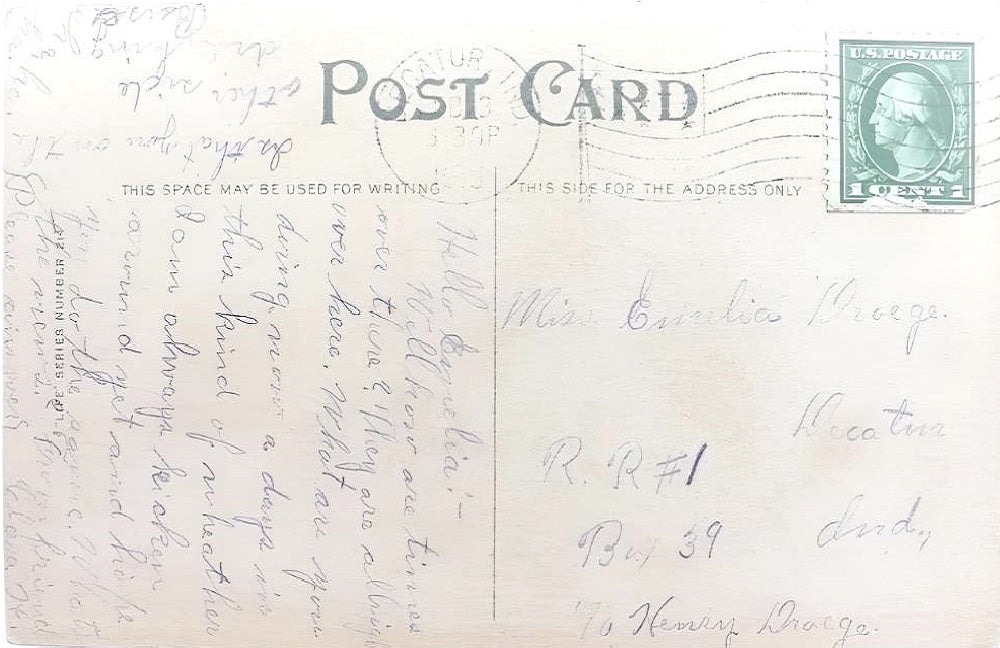 POST CARD
THIS SPACE MAY BE USED FOR WRITING
THIS SIDE FOR THE ADDRESS ONLY
U.S. POSTAGE
1 CENT 1
CATUR
30P
Miss. Emelia Droege.
Decatur
R. R #1
Ind,
Box 39
c/o Henry Droege.
Hello Emelia:-
Well how are times
over there? They are allright
over here. What are you
doing now a days in
this kind of wheather
I am always kicken
around yet and hope
you do the same. Whats
the news?
Please answer
Your friend
Is that you on the
other side
drinking
SERIES NUMBER